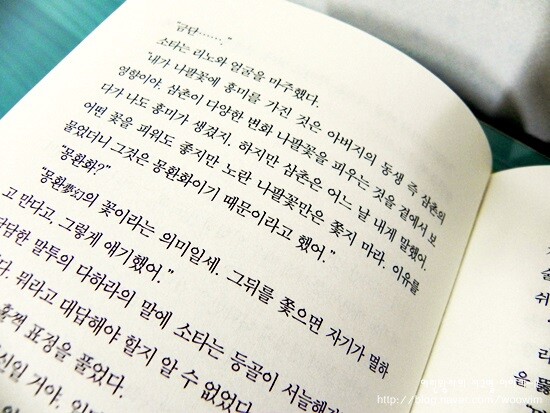 "금단……."
소타는 리노와 얼굴을 마주했다.
"내가 나팔꽃에 흥미를 가진 것은 아버지의 동생 즉 삼촌의
영향이야. 삼촌이 다양한 변화 나팔꽃을 피우는 것을 곁에서 보
다가 나도 흥미가 생겼지. 하지만 삼촌은 어느 날 내게 말했어.
어떤 꽃을 피워도 좋지만 노란 나팔꽃만은 쫓지 마라. 이유를
물었더니 그것은 몽환화이기 때문이라고 했어."
"몽환화?"
"몽환夢幻의 꽃이라는 의미일세. 그뒤를 쫓으면 자기가 멸하
고 만다고, 그렇게 얘기했어."
담담한 말투의 다하라의 말에 소타는 등골이 서늘해
다. 뭐라고 대답해야 할지 알 수 없었다.
표정을 풀었다.
거야.
http://blog.naver.com/woowim